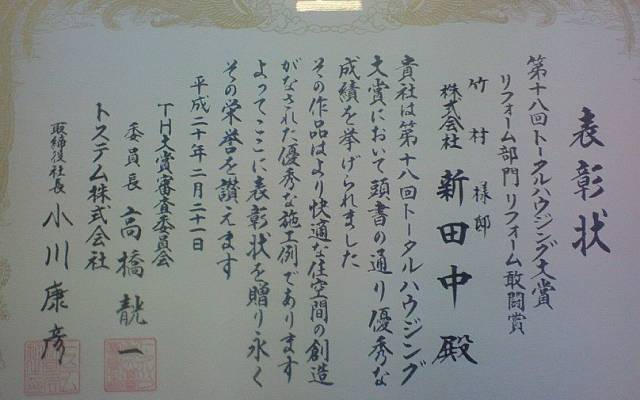 表彰状
第十八回トータルハウジング大賞
リフォーム部門 リフォーム敢闘賞
竹村様邸
株式会社 新田中 殿
貴社は第十八回トータルハウジング
大賞において頭書の通り優秀な
成績を挙げられました
その作品はより快適な住空間の創造
がなされた優秀な施工例であります
よってここに表彰状を贈り永く
その栄誉を讃えます
平成二十年二月二十一日
TH大賞審査委員会
委員長 高橋 靗一
トステム株式会社
取締役社長 小川康彦